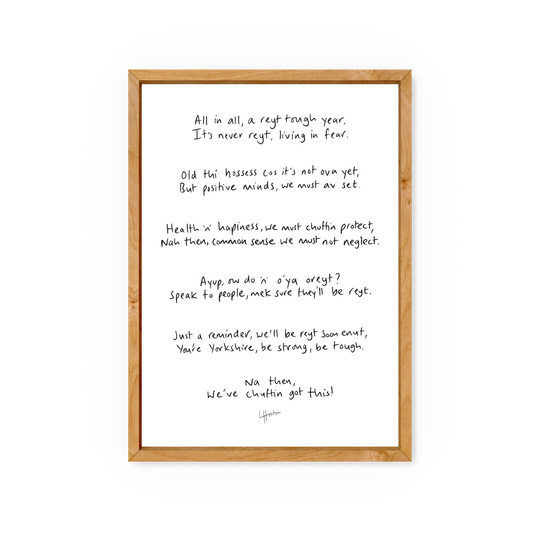 All in all, a reyt tough year,
It's never reyt, living in fear.
Old thi hossess cos it's not ova yet,
But positive minds, we must av set.
Health 'n' hapiness, we must chuffin protect,
Nah then, common sense we must not neglect.
Ayup, ow do 'n' o'ya oreyt?
Speak to people, mek sure they'll be reyt.
Just a reminder, we'll be reyt soon enuf,
You're Yorkshire, be strong, be tough.
Na then,
We've chuffin got this!